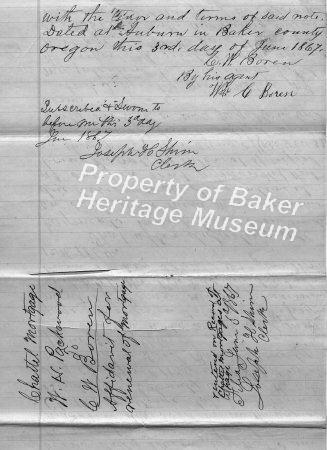 with the tenor and terms of said note.
Dated at Auburn in Baker county
Oregon this 3rd. day of June 1867.
C. W. Boren
By his agent
Wm C Boren
Subscribed & Sworn to
before me this 3d day
June 1867
Joseph H Shinn
Clerk
Property of Baker
Heritage Museum
Chattel Mortgage
W. H. Packwood
to
C W Boren
Affidavit for
renewal of mortgage
Entered on Record of
Chattel mortgages at
page
Filed June 3d 1867
Joseph H Shinn
Clerk